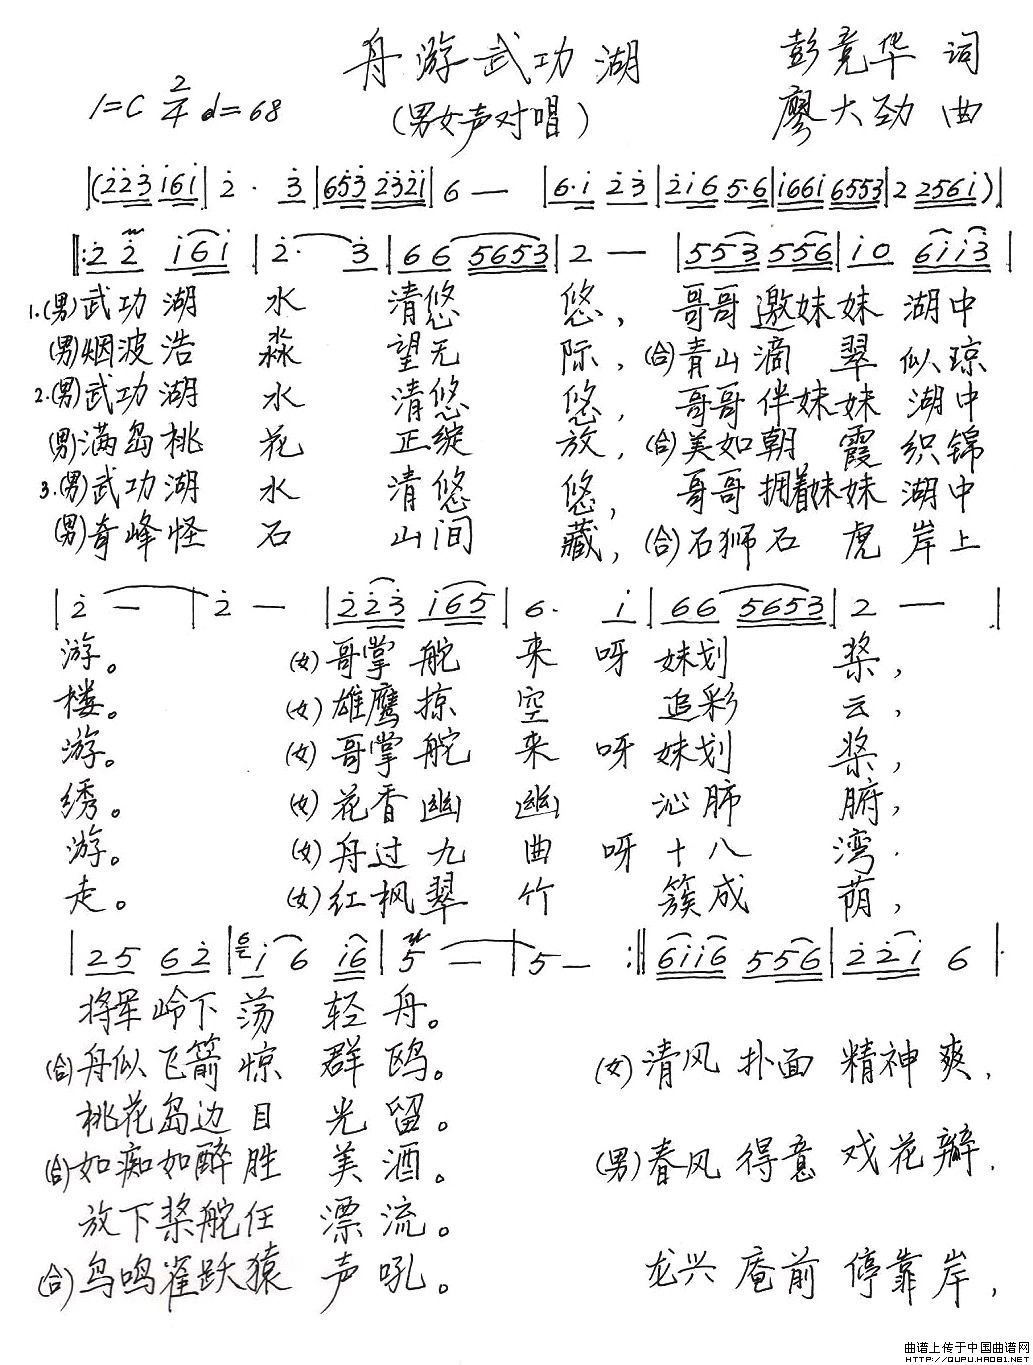 舟游武功湖
彭竟华 词
1=C 2/4 ♩=68
(男女声对唱)
廖大劲 曲
|(2̇2̇3̇ i6i|2̇· 3̇|653̇ 2̇3̇2̇i|6 —|6·i 2̇3̇|2̇i6 5·6|i66i 6553|2 256i)|
‖:2̇2̇ i6i|2̇· 3̇|66 5653|2 —|553 556|i0 6ii3̇|
1.(男)武功湖 水 清悠 悠，哥哥邀妹妹 湖中
(男)烟波浩 淼 望无 际，(合)青山滴 翠 似琼
2.(男)武功湖 水 清悠 悠，哥哥伴妹妹 湖中
(男)满岛桃 花 正绽 放，(合)美如朝 霞 织锦
3.(男)武功湖 水 清悠 悠，哥哥拥着妹妹 湖中
(男)奇峰怪 石 山间 藏，(合)石狮石 虎 岸上
|2̇ —|2̇ —|2̇2̇3̇ i65|6· i|66 5653|2 —|
游。 (女)哥掌舵 来 呀 妹划 桨，
楼。 (女)雄鹰掠 空 追彩 云，
游。 (女)哥掌舵 来 呀 妹划 桨，
绣。 (女)花香幽 幽 沁肺 腑，
游。 (女)舟过九 曲 呀 十八 湾.
走。 (女)红枫翠 竹 簇成 荫，
|25 62̇|i6 i6|5 —|5 — :‖6ii6 556|2̇2̇i 6|
将军岭下 荡 轻 舟。
(合)舟似飞箭 惊 群 鸥。 (女)清风 扑面 精神 爽，
桃花岛边 目 光 留。
(合)如痴如醉 胜 美 酒。 (男)春风 得意 戏花瓣，
放下桨舵任 漂 流。
(合)鸟鸣雀跃猿 声 吼。 龙兴 庵前 停靠岸，
曲谱上传于中国曲谱网
HTTP://QUPU.HAO81.NET